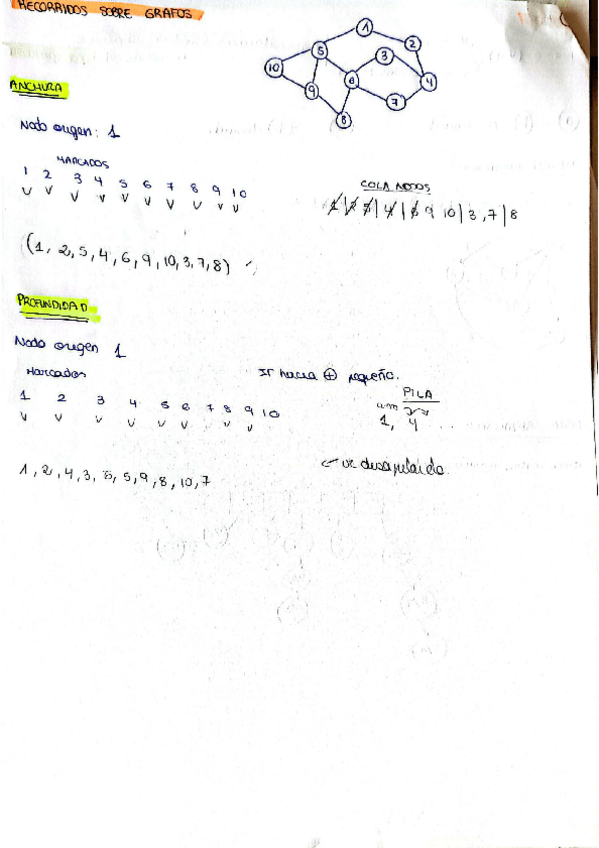 RECORRIDOS SOBRE GRAFOS
1
2
5
3
10
6
4
9
7
8
ANCHURA
Nodo origen: 1
MARCADOS
1 2 3 4 5 6 7 8 9 10
v v v v v v v v v v
COLA NODOS
1 | 2 5 | 4 | 6 9 10 | 3, 7 | 8
(1, 2, 5, 4, 6, 9, 10, 3, 7, 8)
PROFUNDIDAD
Nodo origen 1
Marcados
Ir hacia + pequeño.
1 2 3 4 5 6 7 8 9 10
v v v v v v v v v
PILA
1, 4
ir desapilando.
1, 2, 4, 3, 6, 5, 9, 8, 10, 7